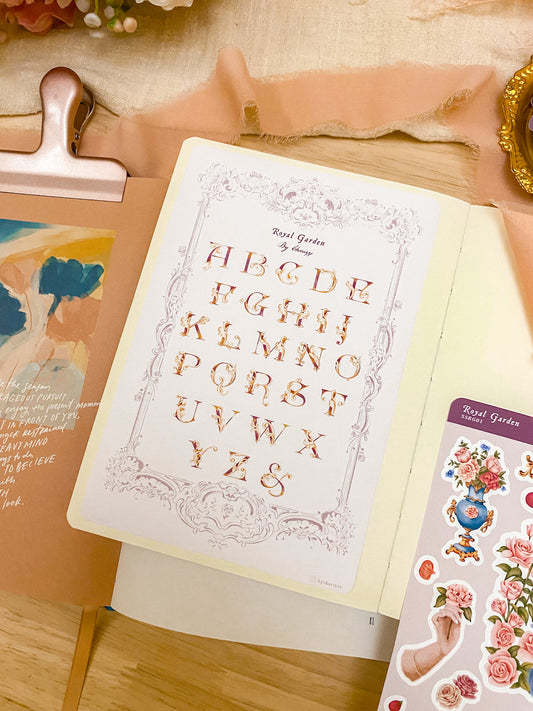 Royal Garden
A B C D E
F G H I J
K L M N O
P Q R S T
U V W X Y
Y Z &
the season,
RAGEOUS PURSUIT.
enjoy the present moment
IN FRONT OF YOU,
NGER RESTRAINED
MIND
to do,
TO BELIEVE
look.
Royal Garden
SSRG01